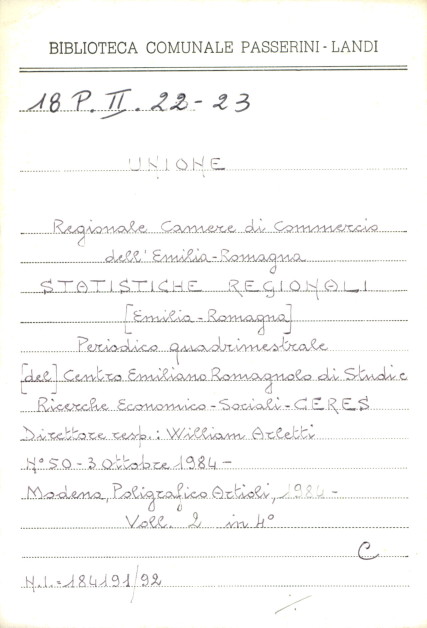 BIBLIOTECA COMUNALE PASSERINI - LANDI
18 P. II. 22-23
UNIONE
Regionale Camere di Commercio
dell'Emilia-Romagna
STATISTICHE REGIONALI
[Emilia-Romagna]
Periodico quadrimestrale
[del] Centro Emiliano Romagnolo di Studi e
Ricerche Economico-Sociali-CERES
Direttore resp.: William Arletti
N° 50-3 Ottobre 1984-
Modena, Poligrafico Artioli, 1984-
Voll. 2 in 4°
C
N.I.=184191/92